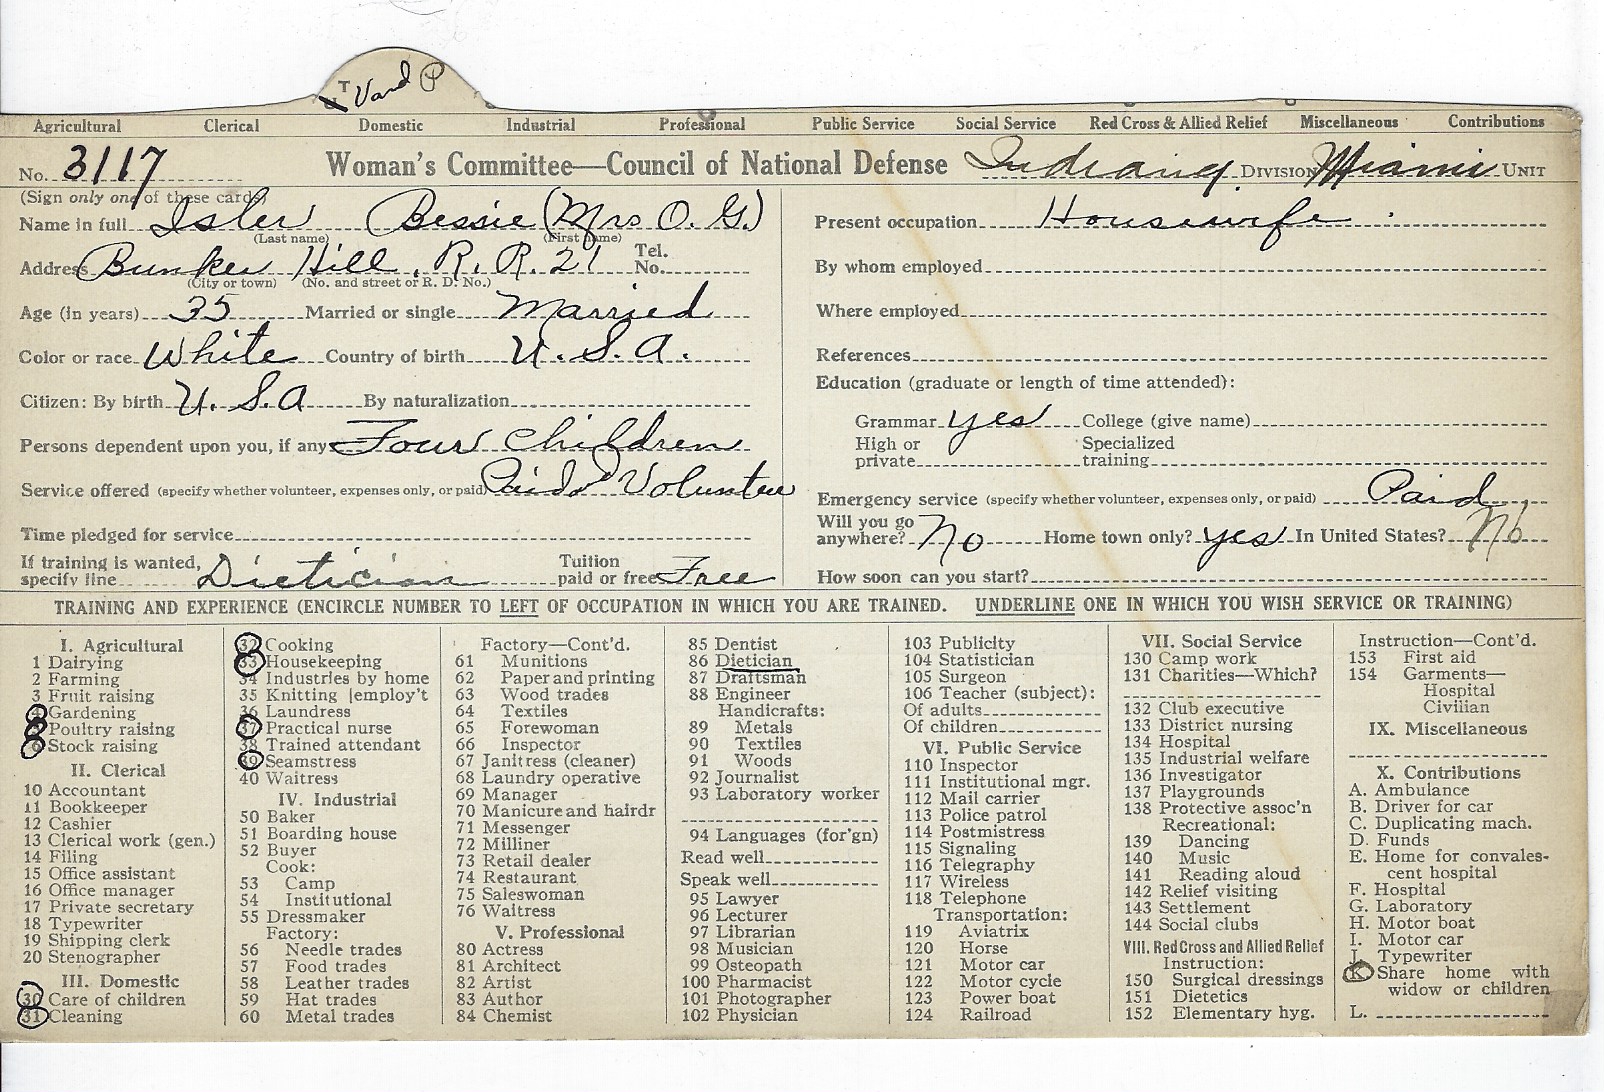 T V and P
Agricultural Clerical Domestic Industrial Professional Public Service Social Service Red Cross & Allied Relief Miscellaneous Contributions
No. 3117 Woman's Committee—Council of National Defense Indiana DIVISION Miami UNIT
(Sign only one of these cards)
Name in full Isler Bessie (Mrs O. G.)
(Last name) (First name)
Address Bunker Hill, R. R. 21 Tel. No.
(City or town) (No. and street or R. D. No.)
Age (in years) 35 Married or single Married
Color or race White Country of birth U. S. A.
Citizen: By birth U. S. A By naturalization
Persons dependent upon you, if any Four Children
Service offered (specify whether volunteer, expenses only, or paid) Volunteer
Time pledged for service
If training is wanted, specify line Dietician Tuition paid or free Free
Present occupation Housewife
By whom employed
Where employed
References
Education (graduate or length of time attended):
Grammar yes College (give name)
High or private Specialized training
Emergency service (specify whether volunteer, expenses only, or paid) Paid
Will you go anywhere? No Home town only? yes In United States? No
How soon can you start?
TRAINING AND EXPERIENCE (ENCIRCLE NUMBER TO LEFT OF OCCUPATION IN WHICH YOU ARE TRAINED. UNDERLINE ONE IN WHICH YOU WISH SERVICE OR TRAINING)
I. Agricultural
1 Dairying
2 Farming
3 Fruit raising
4 Gardening
5 Poultry raising
6 Stock raising
II. Clerical
10 Accountant
11 Bookkeeper
12 Cashier
13 Clerical work (gen.)
14 Filing
15 Office assistant
16 Office manager
17 Private secretary
18 Typewriter
19 Shipping clerk
20 Stenographer
III. Domestic
30 Care of children
31 Cleaning
32 Cooking
33 Housekeeping
34 Industries by home
35 Knitting [employ't
36 Laundress
37 Practical nurse
38 Trained attendant
39 Seamstress
40 Waitress
IV. Industrial
50 Baker
51 Boarding house
52 Buyer
Cook:
53 Camp
54 Institutional
55 Dressmaker
Factory:
56 Needle trades
57 Food trades
58 Leather trades
59 Hat trades
60 Metal trades
Factory—Cont'd.
61 Munitions
62 Paper and printing
63 Wood trades
64 Textiles
65 Forewoman
66 Inspector
67 Janitress (cleaner)
68 Laundry operative
69 Manager
70 Manicure and hairdr
71 Messenger
72 Milliner
73 Retail dealer
74 Restaurant
75 Saleswoman
76 Waitress
V. Professional
80 Actress
81 Architect
82 Artist
83 Author
84 Chemist
85 Dentist
86 Dietician
87 Draftsman
88 Engineer
Handicrafts:
89 Metals
90 Textiles
91 Woods
92 Journalist
93 Laboratory worker
94 Languages (for'gn)
Read well
Speak well
95 Lawyer
96 Lecturer
97 Librarian
98 Musician
99 Osteopath
100 Pharmacist
101 Photographer
102 Physician
103 Publicity
104 Statistician
105 Surgeon
106 Teacher (subject):
Of adults
Of children
VI. Public Service
110 Inspector
111 Institutional mgr.
112 Mail carrier
113 Police patrol
114 Postmistress
115 Signaling
116 Telegraphy
117 Wireless
118 Telephone
Transportation:
119 Aviatrix
120 Horse
121 Motor car
122 Motor cycle
123 Power boat
124 Railroad
VII. Social Service
130 Camp work
131 Charities—Which?
132 Club executive
133 District nursing
134 Hospital
135 Industrial welfare
136 Investigator
137 Playgrounds
138 Protective assoc'n
Recreational:
139 Dancing
140 Music
141 Reading aloud
142 Relief visiting
143 Settlement
144 Social clubs
VIII. Red Cross and Allied Relief
Instruction:
150 Surgical dressings
151 Dietetics
152 Elementary hyg.
Instruction—Cont'd.
153 First aid
154 Garments—
Hospital
Civilian
IX. Miscellaneous
X. Contributions
A. Ambulance
B. Driver for car
C. Duplicating mach.
D. Funds
E. Home for convales-
cent hospital
F. Hospital
G. Laboratory
H. Motor boat
I. Motor car
J. Typewriter
K. Share home with
widow or children
L.